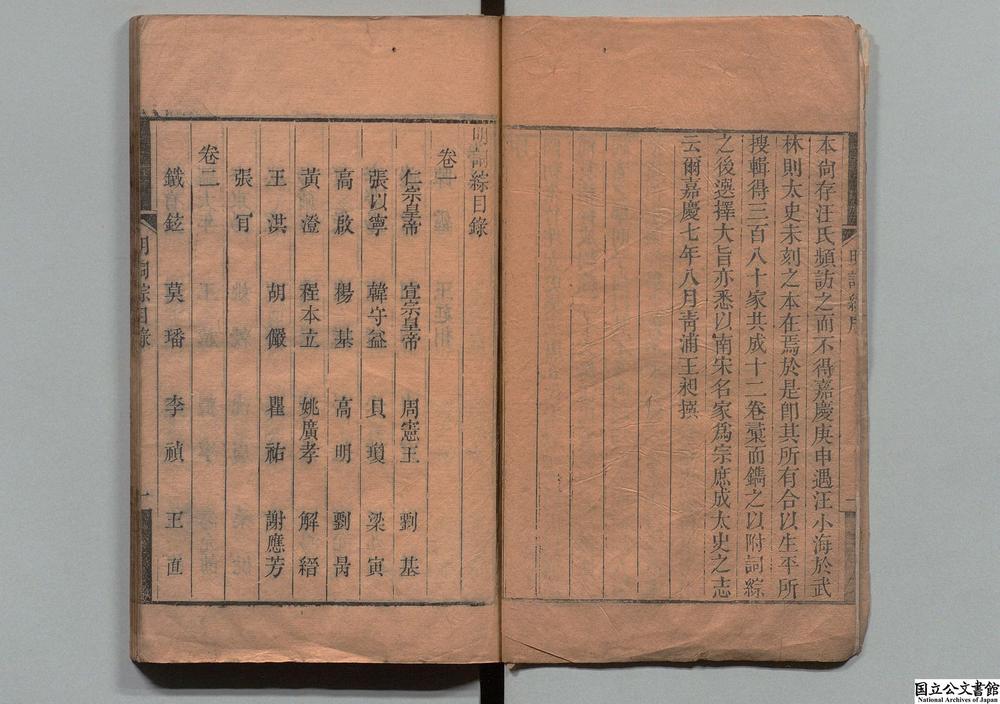 本尙存汪氏頻訪之而不得嘉慶庚申遇汪小海於武
林則太史未刻之本在焉於是卽其所有合以生平所
搜輯得三百八十家共成十二卷彙而鐫之以附詞綜
之後選擇大旨亦悉以南宋名家爲宗庶成太史之志
云爾嘉慶七年八月靑浦王昶撰
明詞綜序
一
明詞綜目錄
卷一
仁宗皇帝 宣宗皇帝 周憲王 劉基
張以寧 韓守益 貝瓊 梁寅
高啟 楊基 高明 劉昺
黃澄 程本立 姚廣孝 解縉
王洪 胡儼 瞿祐 謝應芳
張肎
卷二
鐵鉉 莫璠 李禎 王直
明詞綜目錄
一
国立公文書館
National Archives of Japan